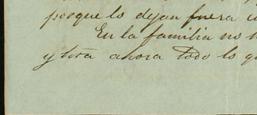 porque lo dejan fuera
En la familia no
ahora todo lo